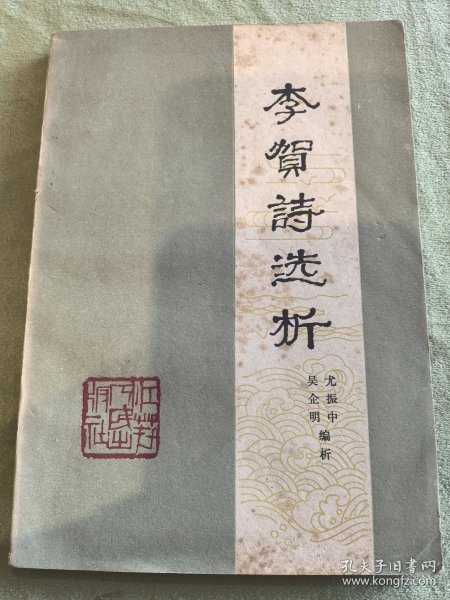 李賀詩选析
尤振中
吴企明
编析
江苏人民出版社
孔夫子旧书网
www.kongfz.com